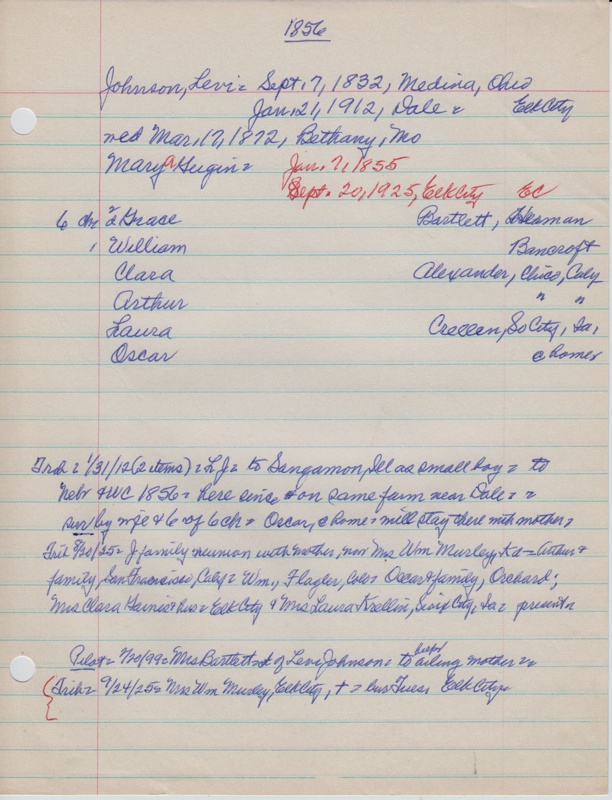 1856
Johnson, Levi = Sept. 7, 1832, Medina, Ohio
Jan. 21, 1912, Dale = Elk City
wed Mar. 17, 1872, Bethany, Mo
Mary a = Jan. 7, 1855
Sept. 20, 1925, Elk City EC
6 ch 2 Grace Bartlett, Herman
1 William Bancroft
Clara Alexander, Chico, Caly
Arthur " "
Laura Crellen, So City, Ia,
Oscar @ home
Trib = 1/31/12 (2 items) = LJ = to Sangamon, Ill as small boy = to
Nebr & WC 1856 = here since & on same farm near Dale = =
sur by wife & 6 of 6 ch = Oscar, @ home = will stay there with mother =
Trib 8/20/25 = J family reunion with mother, now Mrs. Wm Murley, = Arthur &
family, San Francisco, Caly = Wm, Flagler, Colo = Oscar & family, Orchard;
Mrs Clara & hus = Elk City & Mrs Laura Krellin, Sioux City, Ia = present =
Pilot = 7/20/99 = Mrs Bartlett of Levi Johnson = to ailing mother = =
Trib = 9/24/25 = Mrs Wm Murley, Elk City, + = Elk City =